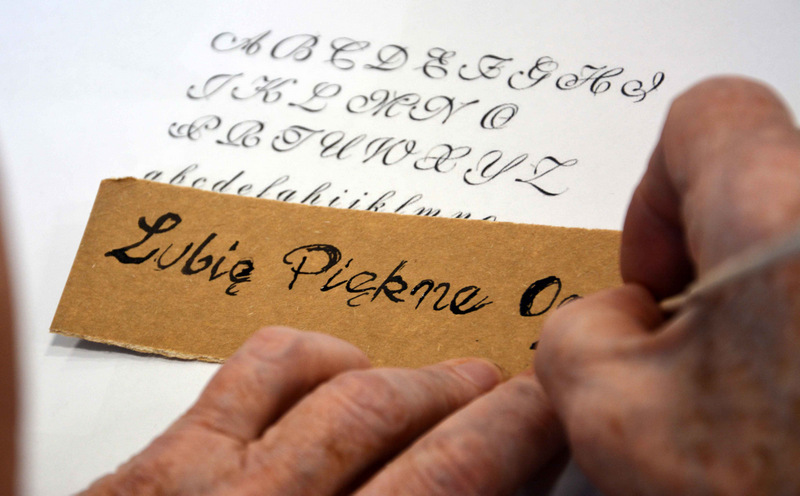 A B C D E F G H I
J K L M N O
P R S T U W X Y Z
a b c d e f g h i j k l m n o
Lubię Piękne